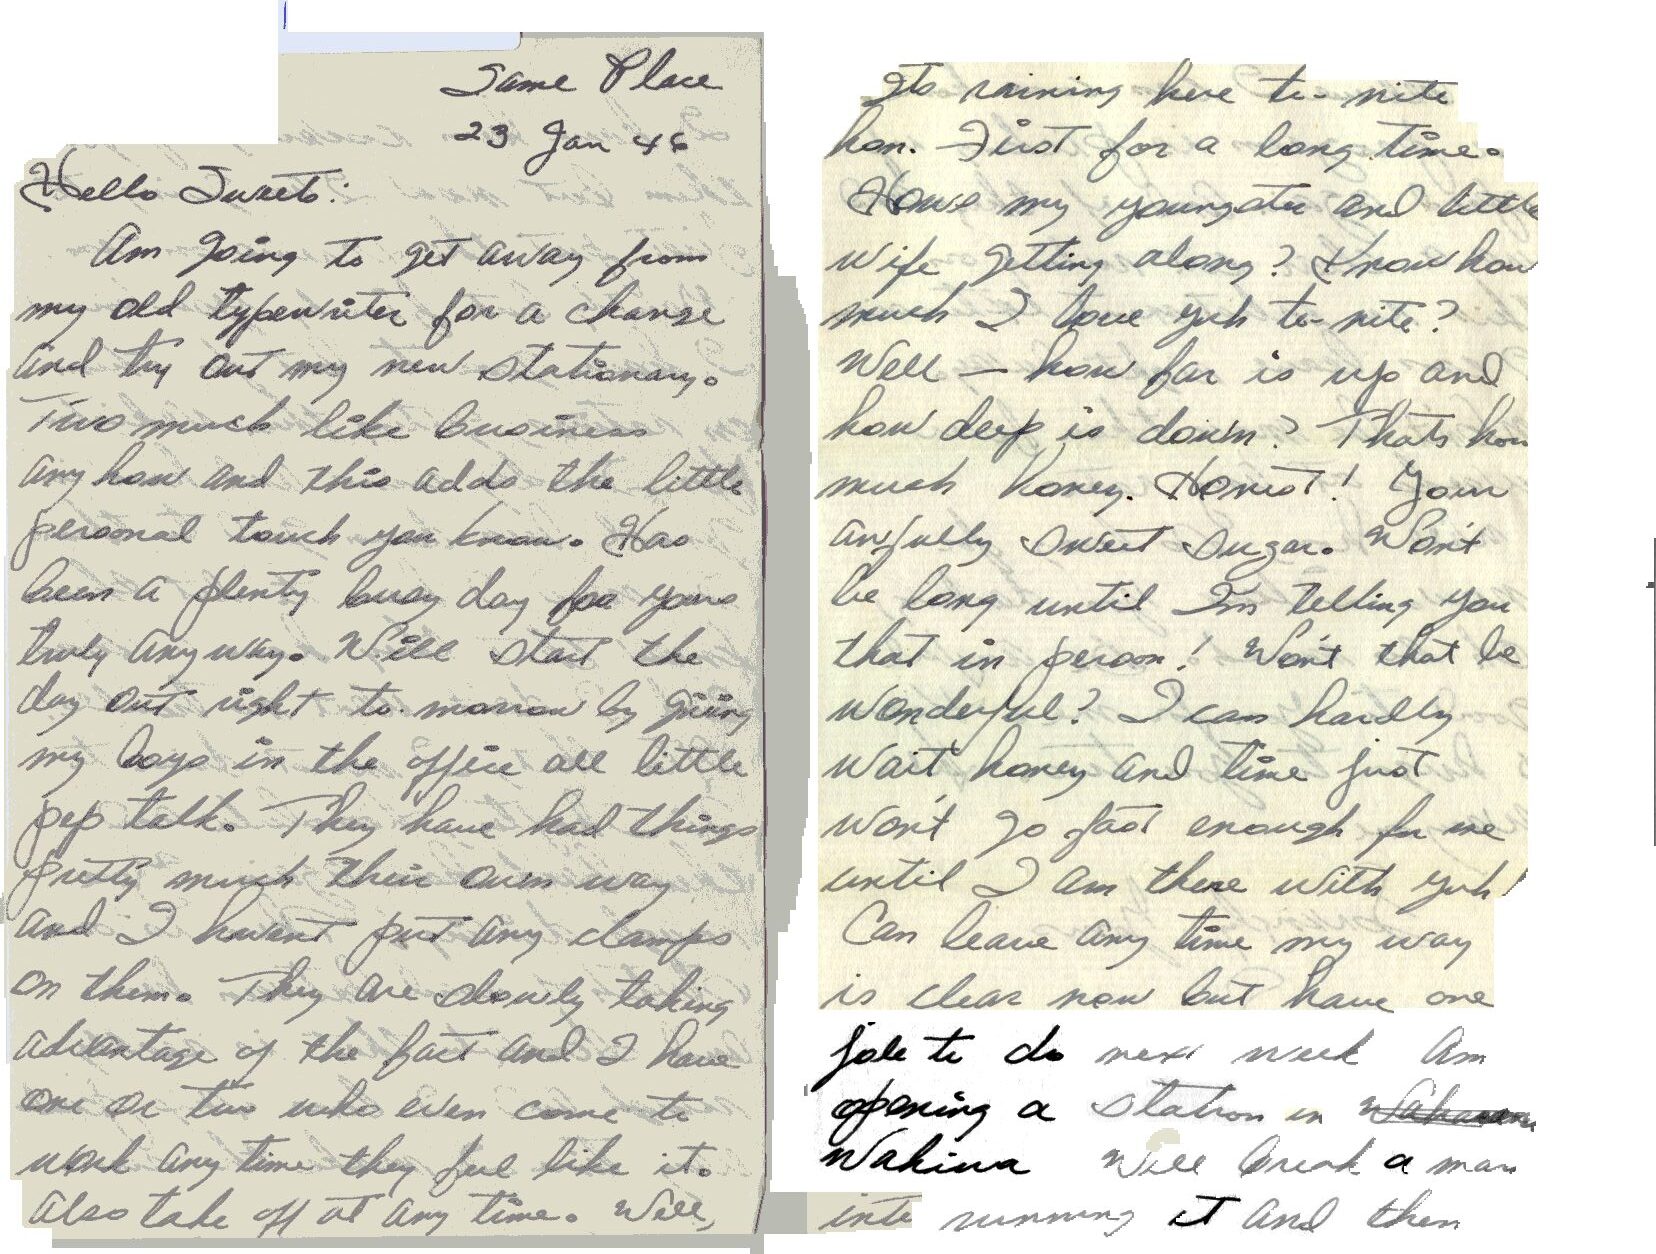 Same Place
23 Jan 46
Hello Sweets:
Am going to get away from
my old typewriter for a change
and try out my new stationary.
Two much like business
anyhow and this adds the little
personal touch you know. Has
been a plenty busy day for yours
truly anyway. Will start the
day out right to-morrow by giving
my boys in the office all little
pep talk. They have had things
pretty much their own way
and I havent put any clamps
on them. They are slowly taking
advantage of the fact and I have
one or two who even come to
work any time they feel like it.
Also take off at any time. Well,
Its raining here to-nite
hon. First for a long time.
Hows my youngster and little
wife getting along? Know how
much I love yuh to-nite?
Well — how far is up and
how deep is down? Thats how
much honey. Honest! Your
awfully sweet sugar. Won't
be long until Im telling you
that in person! Won't that be
wonderful? I can hardly
wait honey and time just
won't go fast enough for me
until I am there with yuh!
Can leave any time my way
is clear now but have one
job to do next week Am
opening a station in
Wakiwa Will break a man
into running it and then